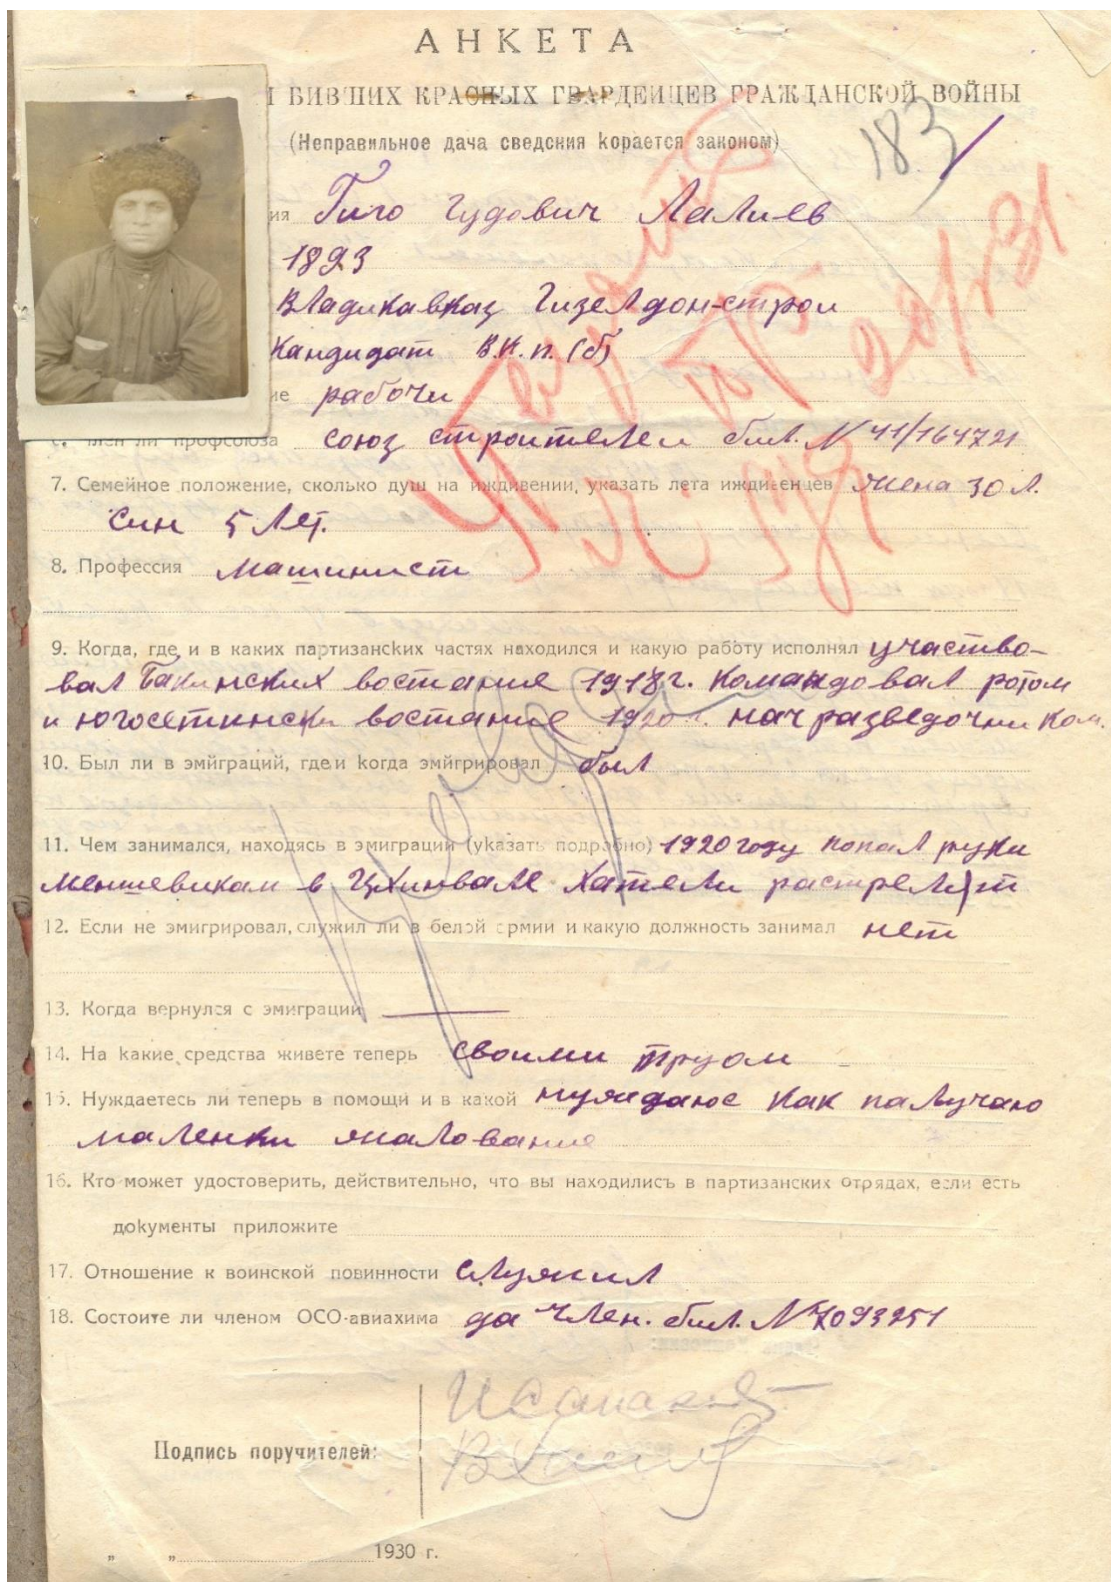 АНКЕТА
БИВШИХ КРАСНЫХ ГВАРДЕИЦЕВ ГРАЖДАНСКОЙ ВОЙНЫ
(Неправильное дача сведения карается законом)
183
ия Гиго Гудович Лалиев
1893
Владикавказ Гизелдон-строи
Кандидат В.К.П. (б)
ие рабочи
член ли профсоюза союз строителеи бил. № 41/164721
7. Семейное положение, сколько душ на иждивении, указать лета иждивенцев жена 30 л.
син 5 лет.
8. Профессия машинист
9. Когда, где и в каких партизанских частях находился и какую работу исполнял участво-
вал Бакинских востание 1918 г. Командовал ротом
и югосетински востание 1920 г. нач разведочни ком.
10. Был ли в эмйграций, где и когда эмйгрировал был
11. Чем занимался, находясь в эмиграции (указать подробно) 1920 году попал руки
меншевикам в Цхинвале хатели растрелят
12. Если не эмигрировал, служил ли в белой армии и какую должность занимал нет
13. Когда вернулся с эмиграции
14. На какие средства живете теперь своими труом
15. Нуждаетесь ли теперь в помощи и в какой нуждаюс как палучаю
маленки жалование
16. Кто может удостоверить, действительно, что вы находились в партизанских отрядах, если есть
документы приложите
17. Отношение к воинской повинности служил
18. Состоите ли членом ОСО-авиахима да член. бил. № 7093251
Подпись поручителей:
" " 1930 г.